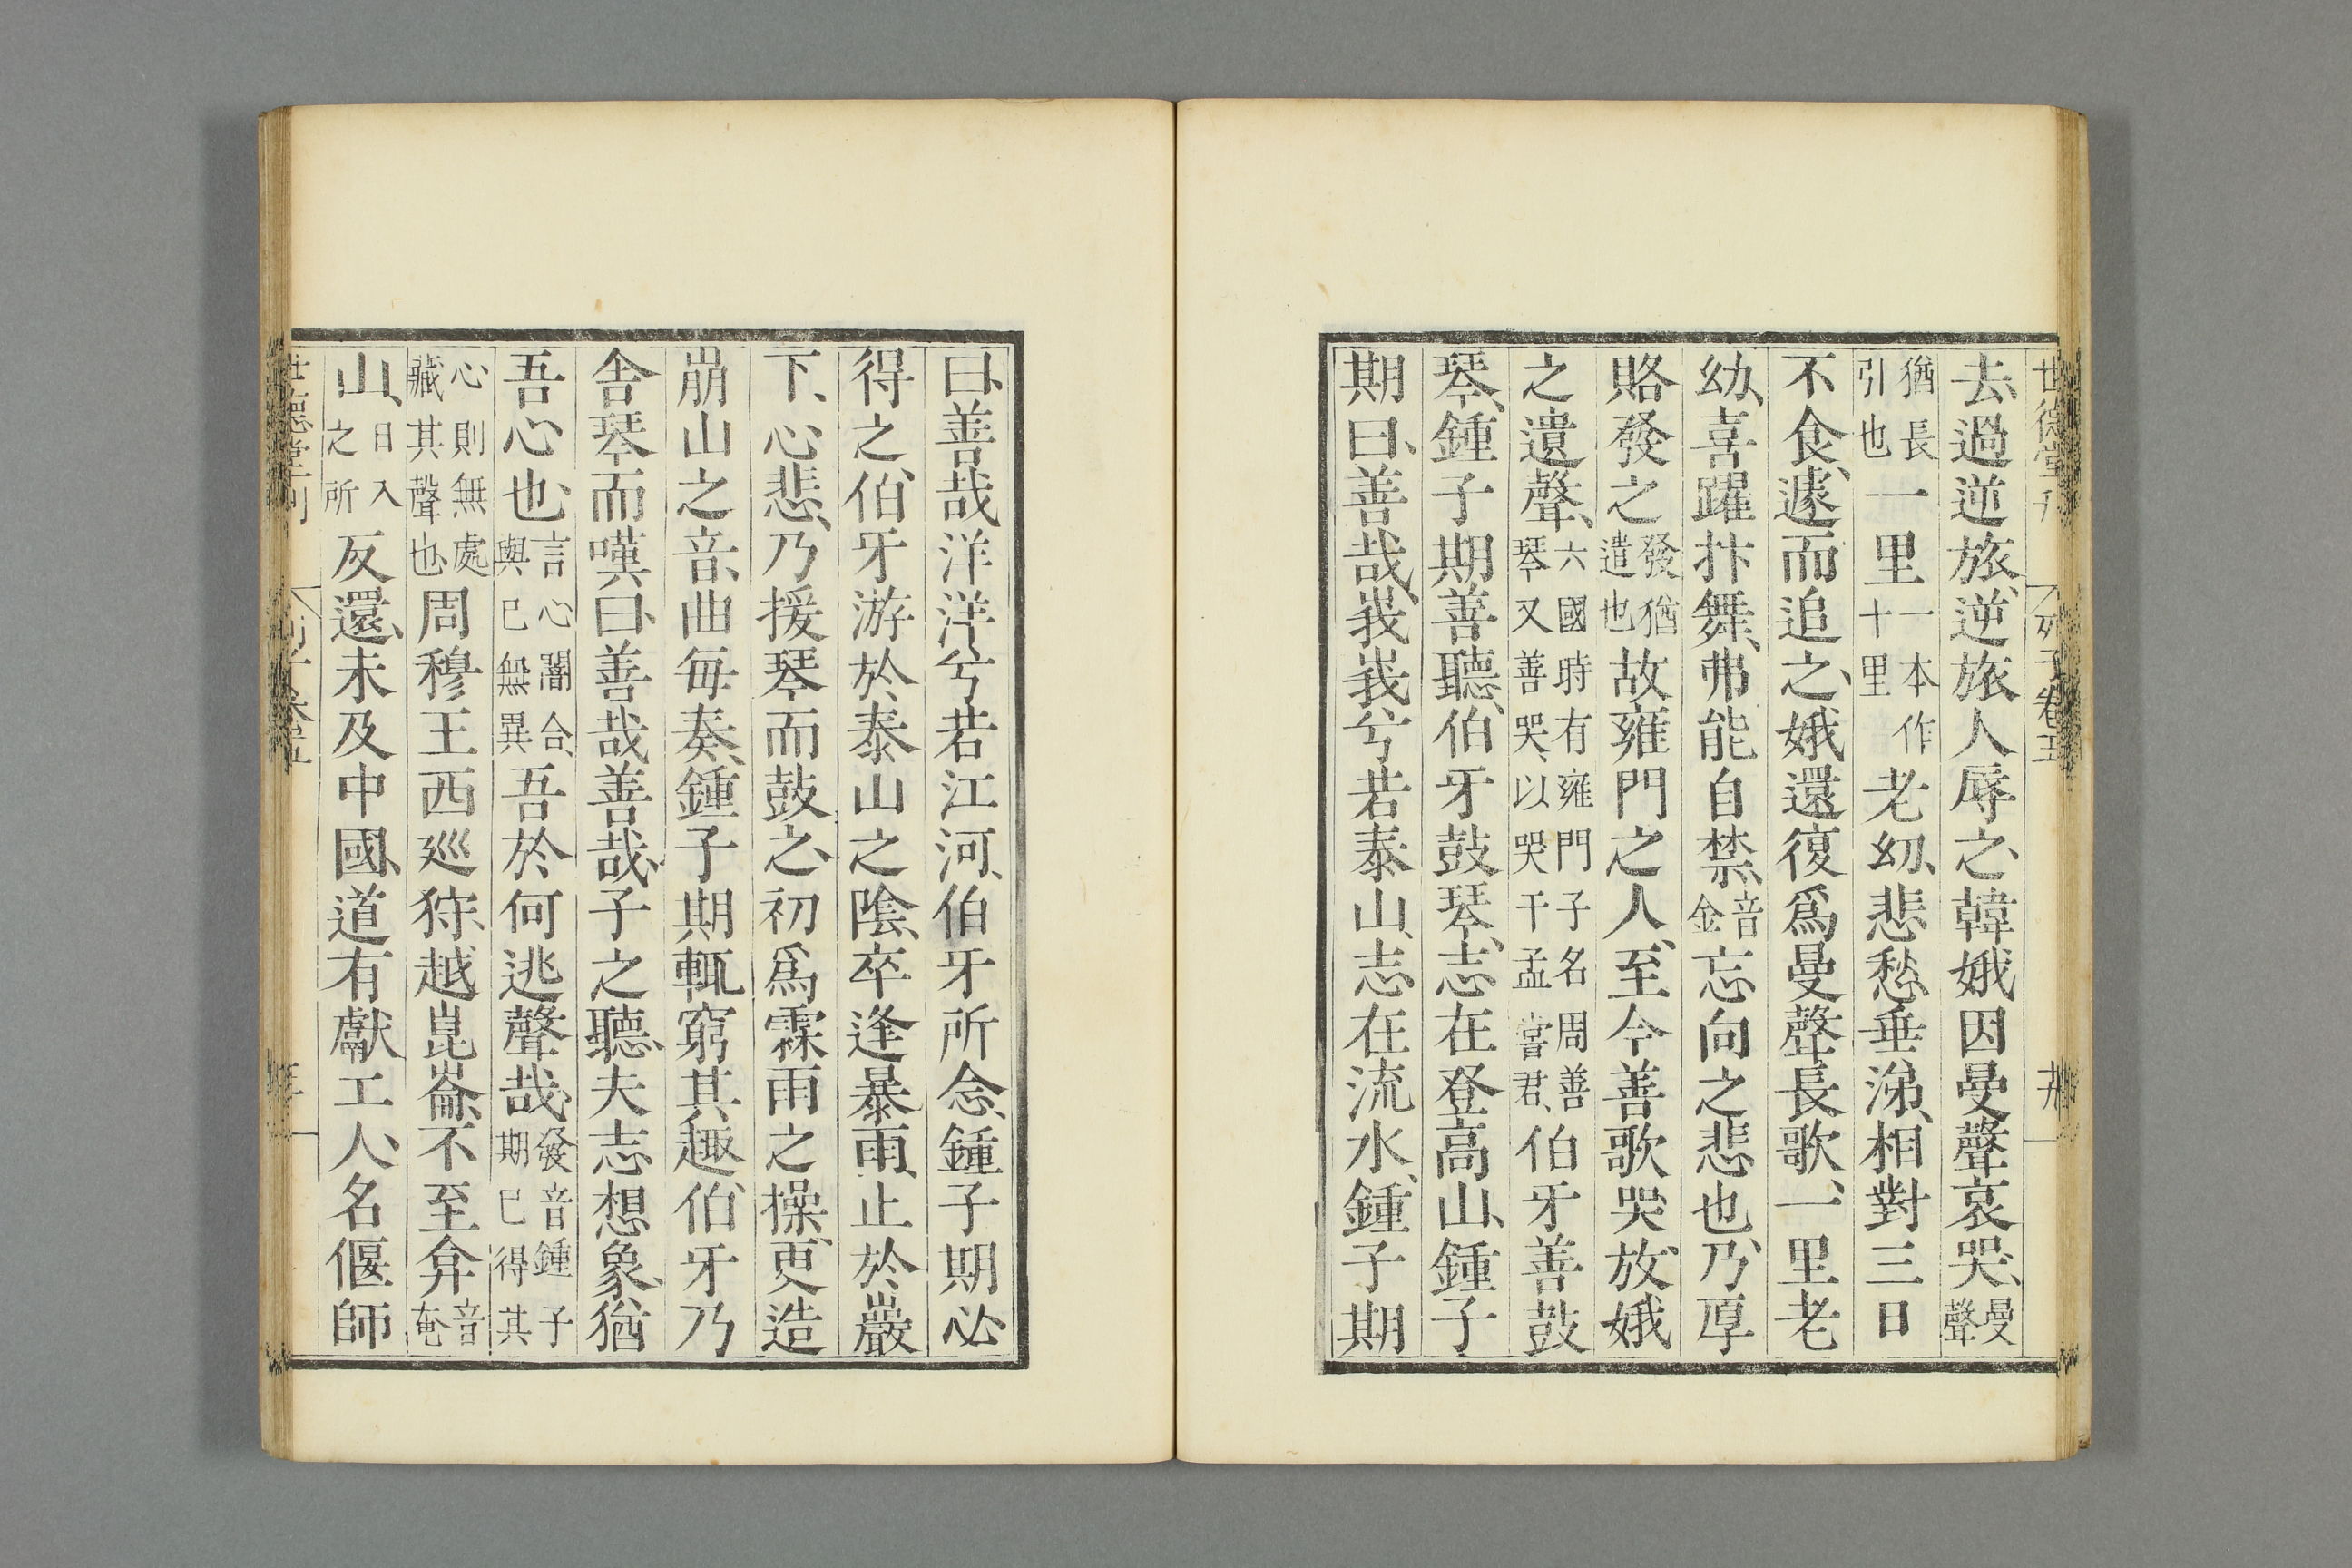 世德堂刊 列子卷五 十九
去、過逆旅、逆旅人辱之、韓娥因曼聲哀哭、曼聲
猶長引也一里一本作十里老幼、悲愁、垂涕、相對三日
不食、遽而追之、娥還復爲曼聲長歌、一里老
幼、喜躍抃舞、弗能自禁、音金忘向之悲也、乃厚
賂發之發猶遣也故雍門之人、至今善歌哭、放娥
之遺聲、六國時有雍門子名周善琴又善哭、以哭干孟嘗君、伯牙善鼓
琴、鍾子期善聽、伯牙鼓琴、志在登高山、鍾子
期曰、善哉、峩峩兮若泰山、志在流水、鍾子期
曰、善哉洋洋兮若江河、伯牙所念、鍾子期必
得之、伯牙游於泰山之陰、卒逢暴雨、止於巖
下、心悲、乃援琴而鼓之、初爲霖雨之操、更造
崩山之音、曲每奏、鍾子期輒窮其趣、伯牙乃
舎琴而嘆曰、善哉善哉、子之聽、夫志想象、猶
吾心也、言心闇合、與己無異吾於何逃聲哉、發音鍾子期已得其
心則無處藏其聲也、周穆王西廵狩、越崑崙、不至弇音奄
山、日入之所反還、未及中國、道有獻工人、名偃師
世德堂刊